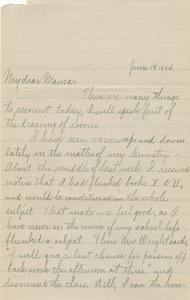 June 14, 1904.
My dear Mama:
There are many things
to recount today, I will speak first of
the drawing of rooms.
I have seen various ups and downs
lately in the matter of my Geometry.
About the middle of last week I received
notice that I had flunked books I & II,
and would be conditioned in the whole
subject. That made me feel good, as I
have never in the course of my school life
flunked a subject. Then Mr. Wright said,
I will give a last chance for passing off
back work this afternoon at three and
dismissed the class. Well, I ran the